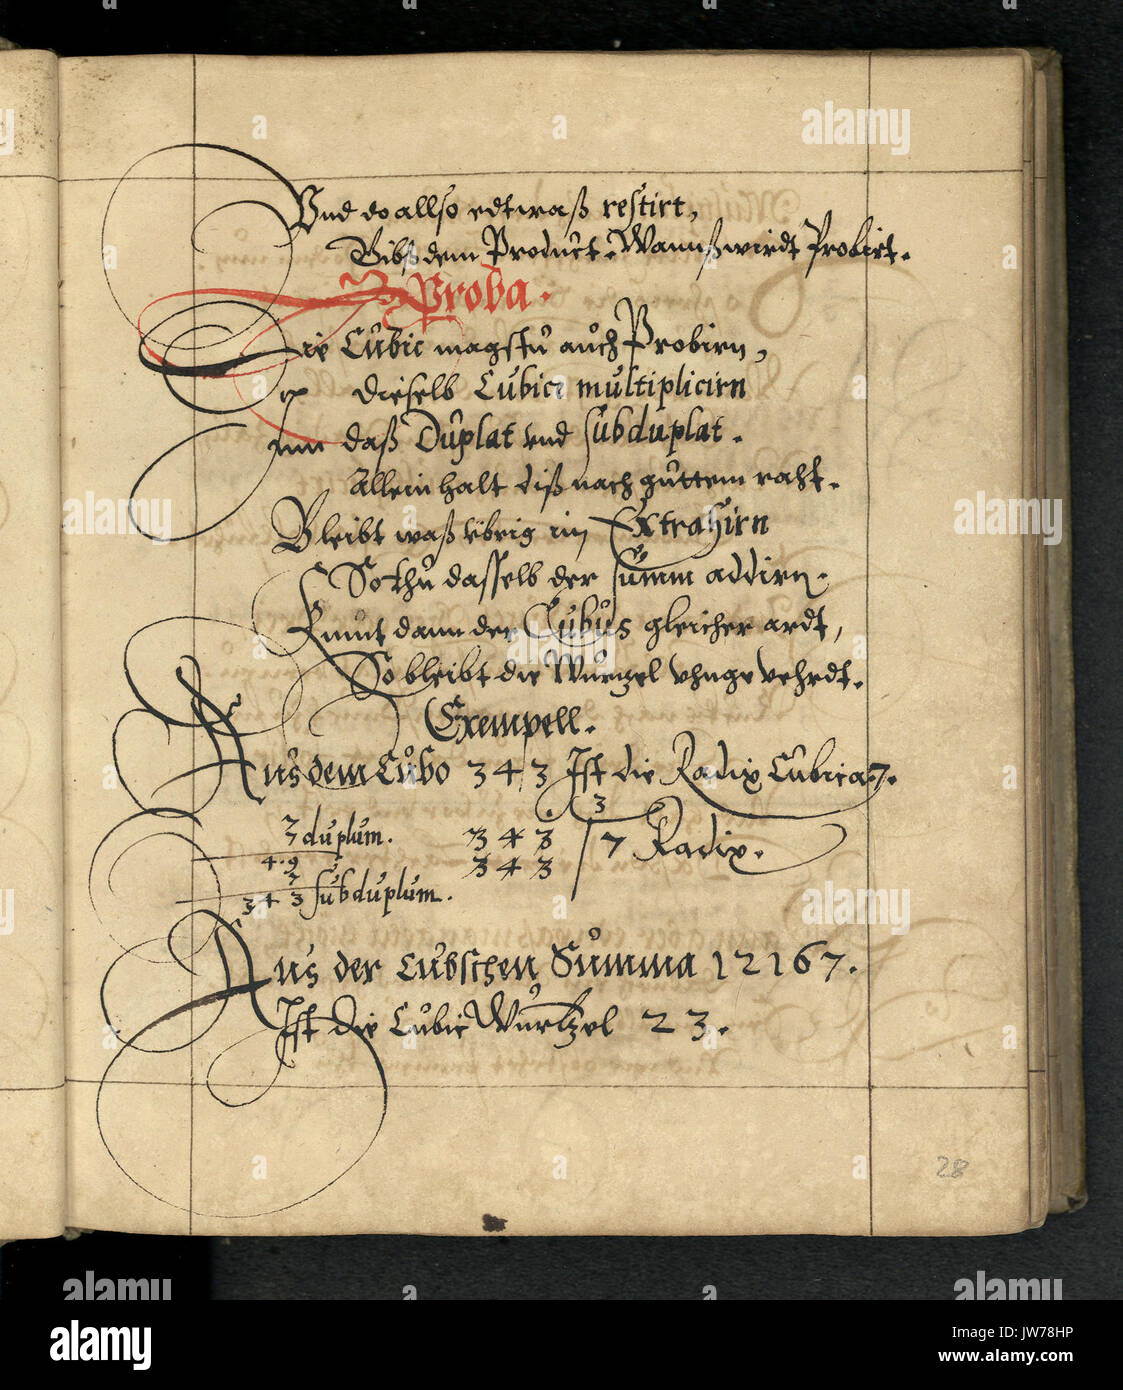 Vnd do allso edtwaß restirt,
Gibß dem Product. Wannß wirdt Probirt.
Proba.
Die Cubic magstu auch Probirn,
dieselb Cubice multiplicirn
Inn daß Duplat vnd subduplat.
Allein halt diß nach guttem raht.
Bleibt waß vbrig im Extrahirn
So thu dasselb der summ addirn.
Kumt dann der Cubus gleicher ardt,
So bleibt die Wurzel vhnge vehrdt.
Exempell.
Aus dem Cubo 343 Ist die Radix Cubica 7.
3
7 duplum. 343 7 Radix.
4·9 343
7
343 subduplum.
Aus der Cubschen Summa 12167.
Ist die Cubic Wurtzel 23.
28
alamy
JW78HP
www.alamy.com